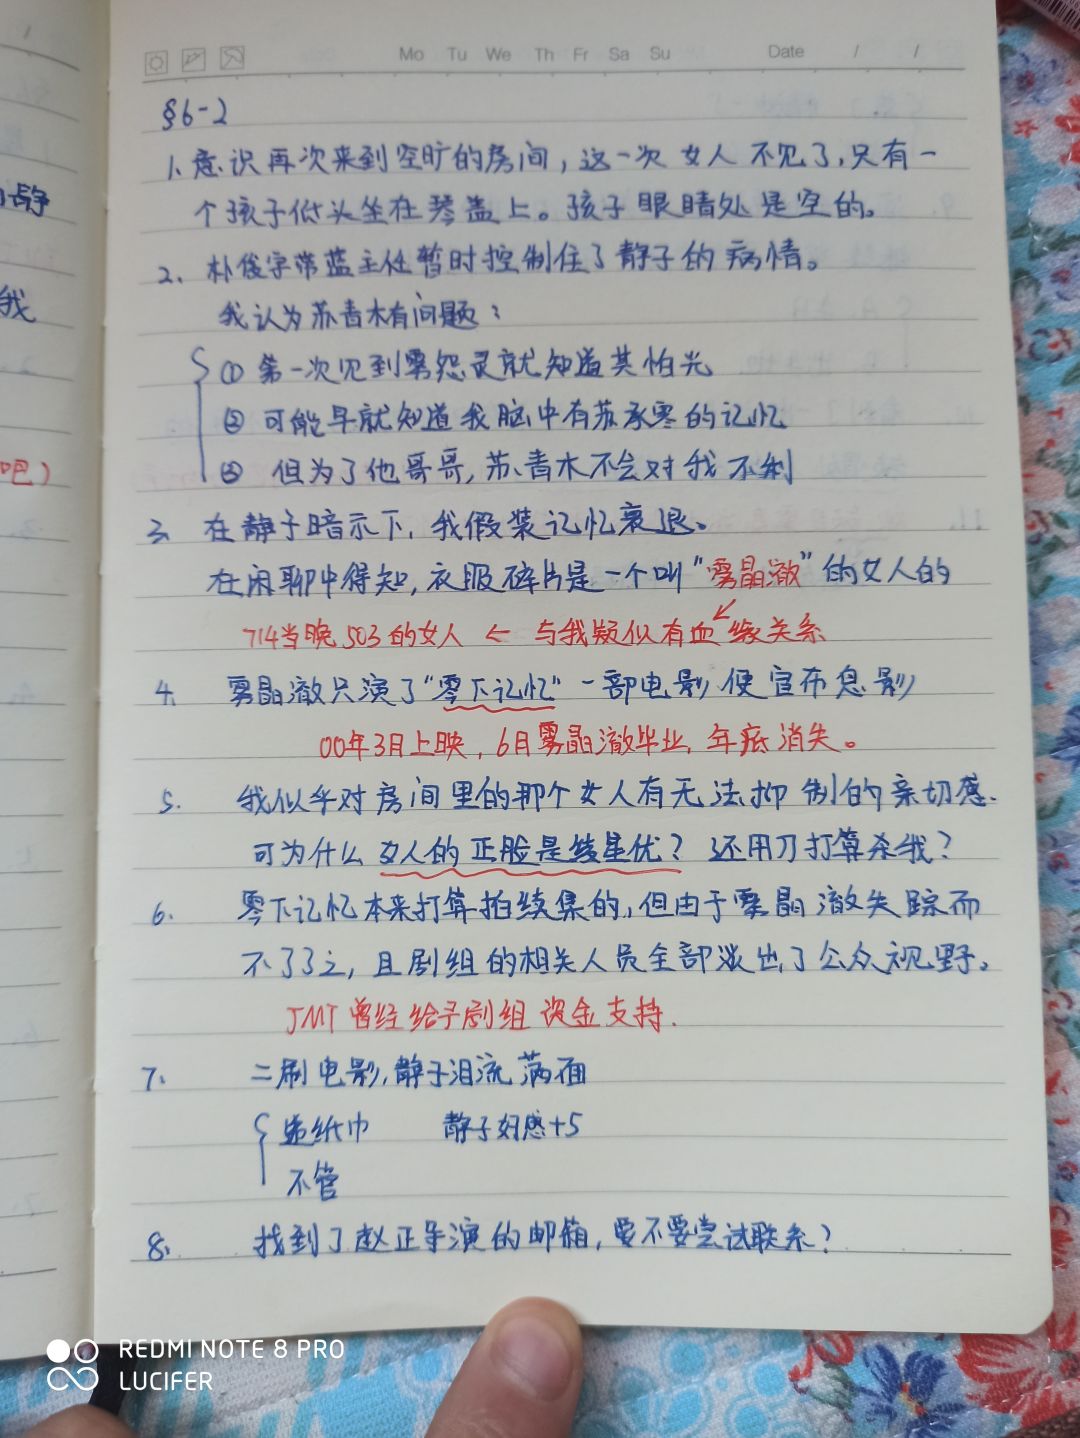 Mo Tu We Th Fr Sa Su Date / /
§6-2
1. 意识再次来到空旷的房间，这一次女人不见了，只有一
个孩子低头坐在琴盖上。孩子眼睛处是空的。
2. 朴俊宇带蓝主任暂时控制住了静子的病情。
我认为苏青木有问题：
① 第一次见到雾怨灵就知道其怕光
② 可能早就知道我脑中有苏承寒的记忆
③ 但为了他哥哥，苏青木不会对我不利
3. 在静子暗示下，我假装记忆衰退。
在闲聊中得知，衣服碎片是一个叫“雾晶澈”的女人的
714当晚503的女人 ← 与我疑似有血缘关系
4. 雾晶澈只演了“零下记忆”一部电影便宣布息影
00年3月上映，6月雾晶澈毕业，年底消失。
5. 我似乎对房间里的那个女人有无法抑制的亲切感.
可为什么女人的正脸是绫星优？还用刀打算杀我？
6. 零下记忆本来打算拍续集的，但由于雾晶澈失踪而
不了了之，且剧组的相关人员全部淡出了公众视野。
JMT曾经给予剧组资金支持.
7. 二刷电影，静子泪流满面
递纸巾 静子好感+5
不管
8. 找到了赵正导演的邮箱，要不要尝试联系？
静
我
吧）
REDMI NOTE 8 PRO
LUCIFER